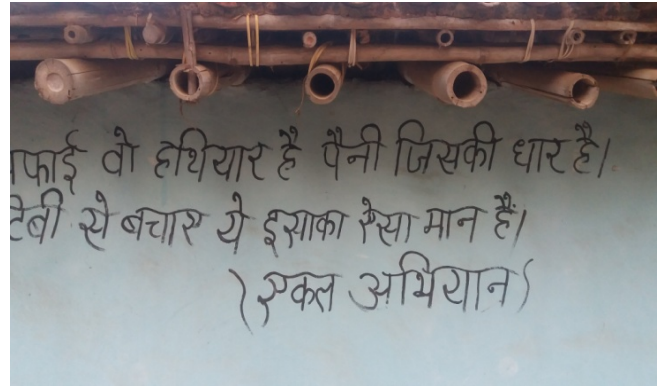 सफाई वो हथियार है पैनी जिसकी धार है।
टीबी से बचाए ये इसाका ऐसा मान हैं।
(एकल अभियान)